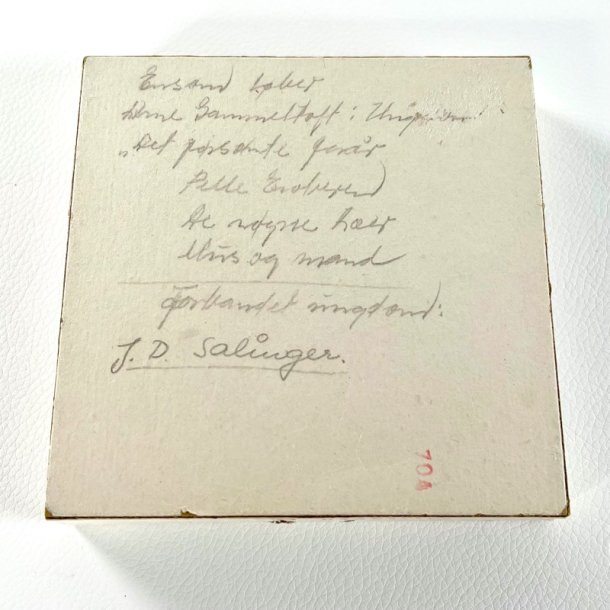 Ensom Løber
Gammeltoft:
„Det forsømte forår
Pelle Erobreren
De nøgne træer
Mus og mænd
Forbandet ungdom:
J. D. Salinger.
704